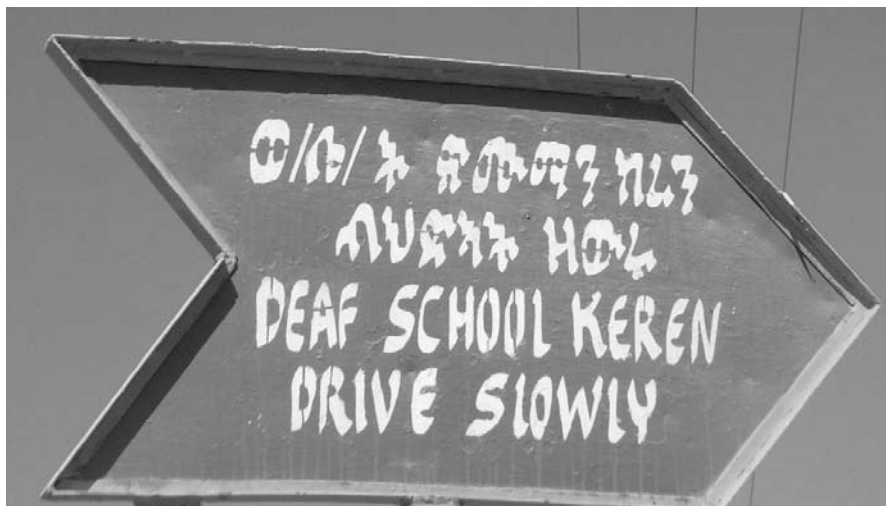 ወ/ቤ/ት ጽሙማን ከረን
ብህድኣት ዘውሩ
DEAF SCHOOL KEREN
DRIVE SLOWLY